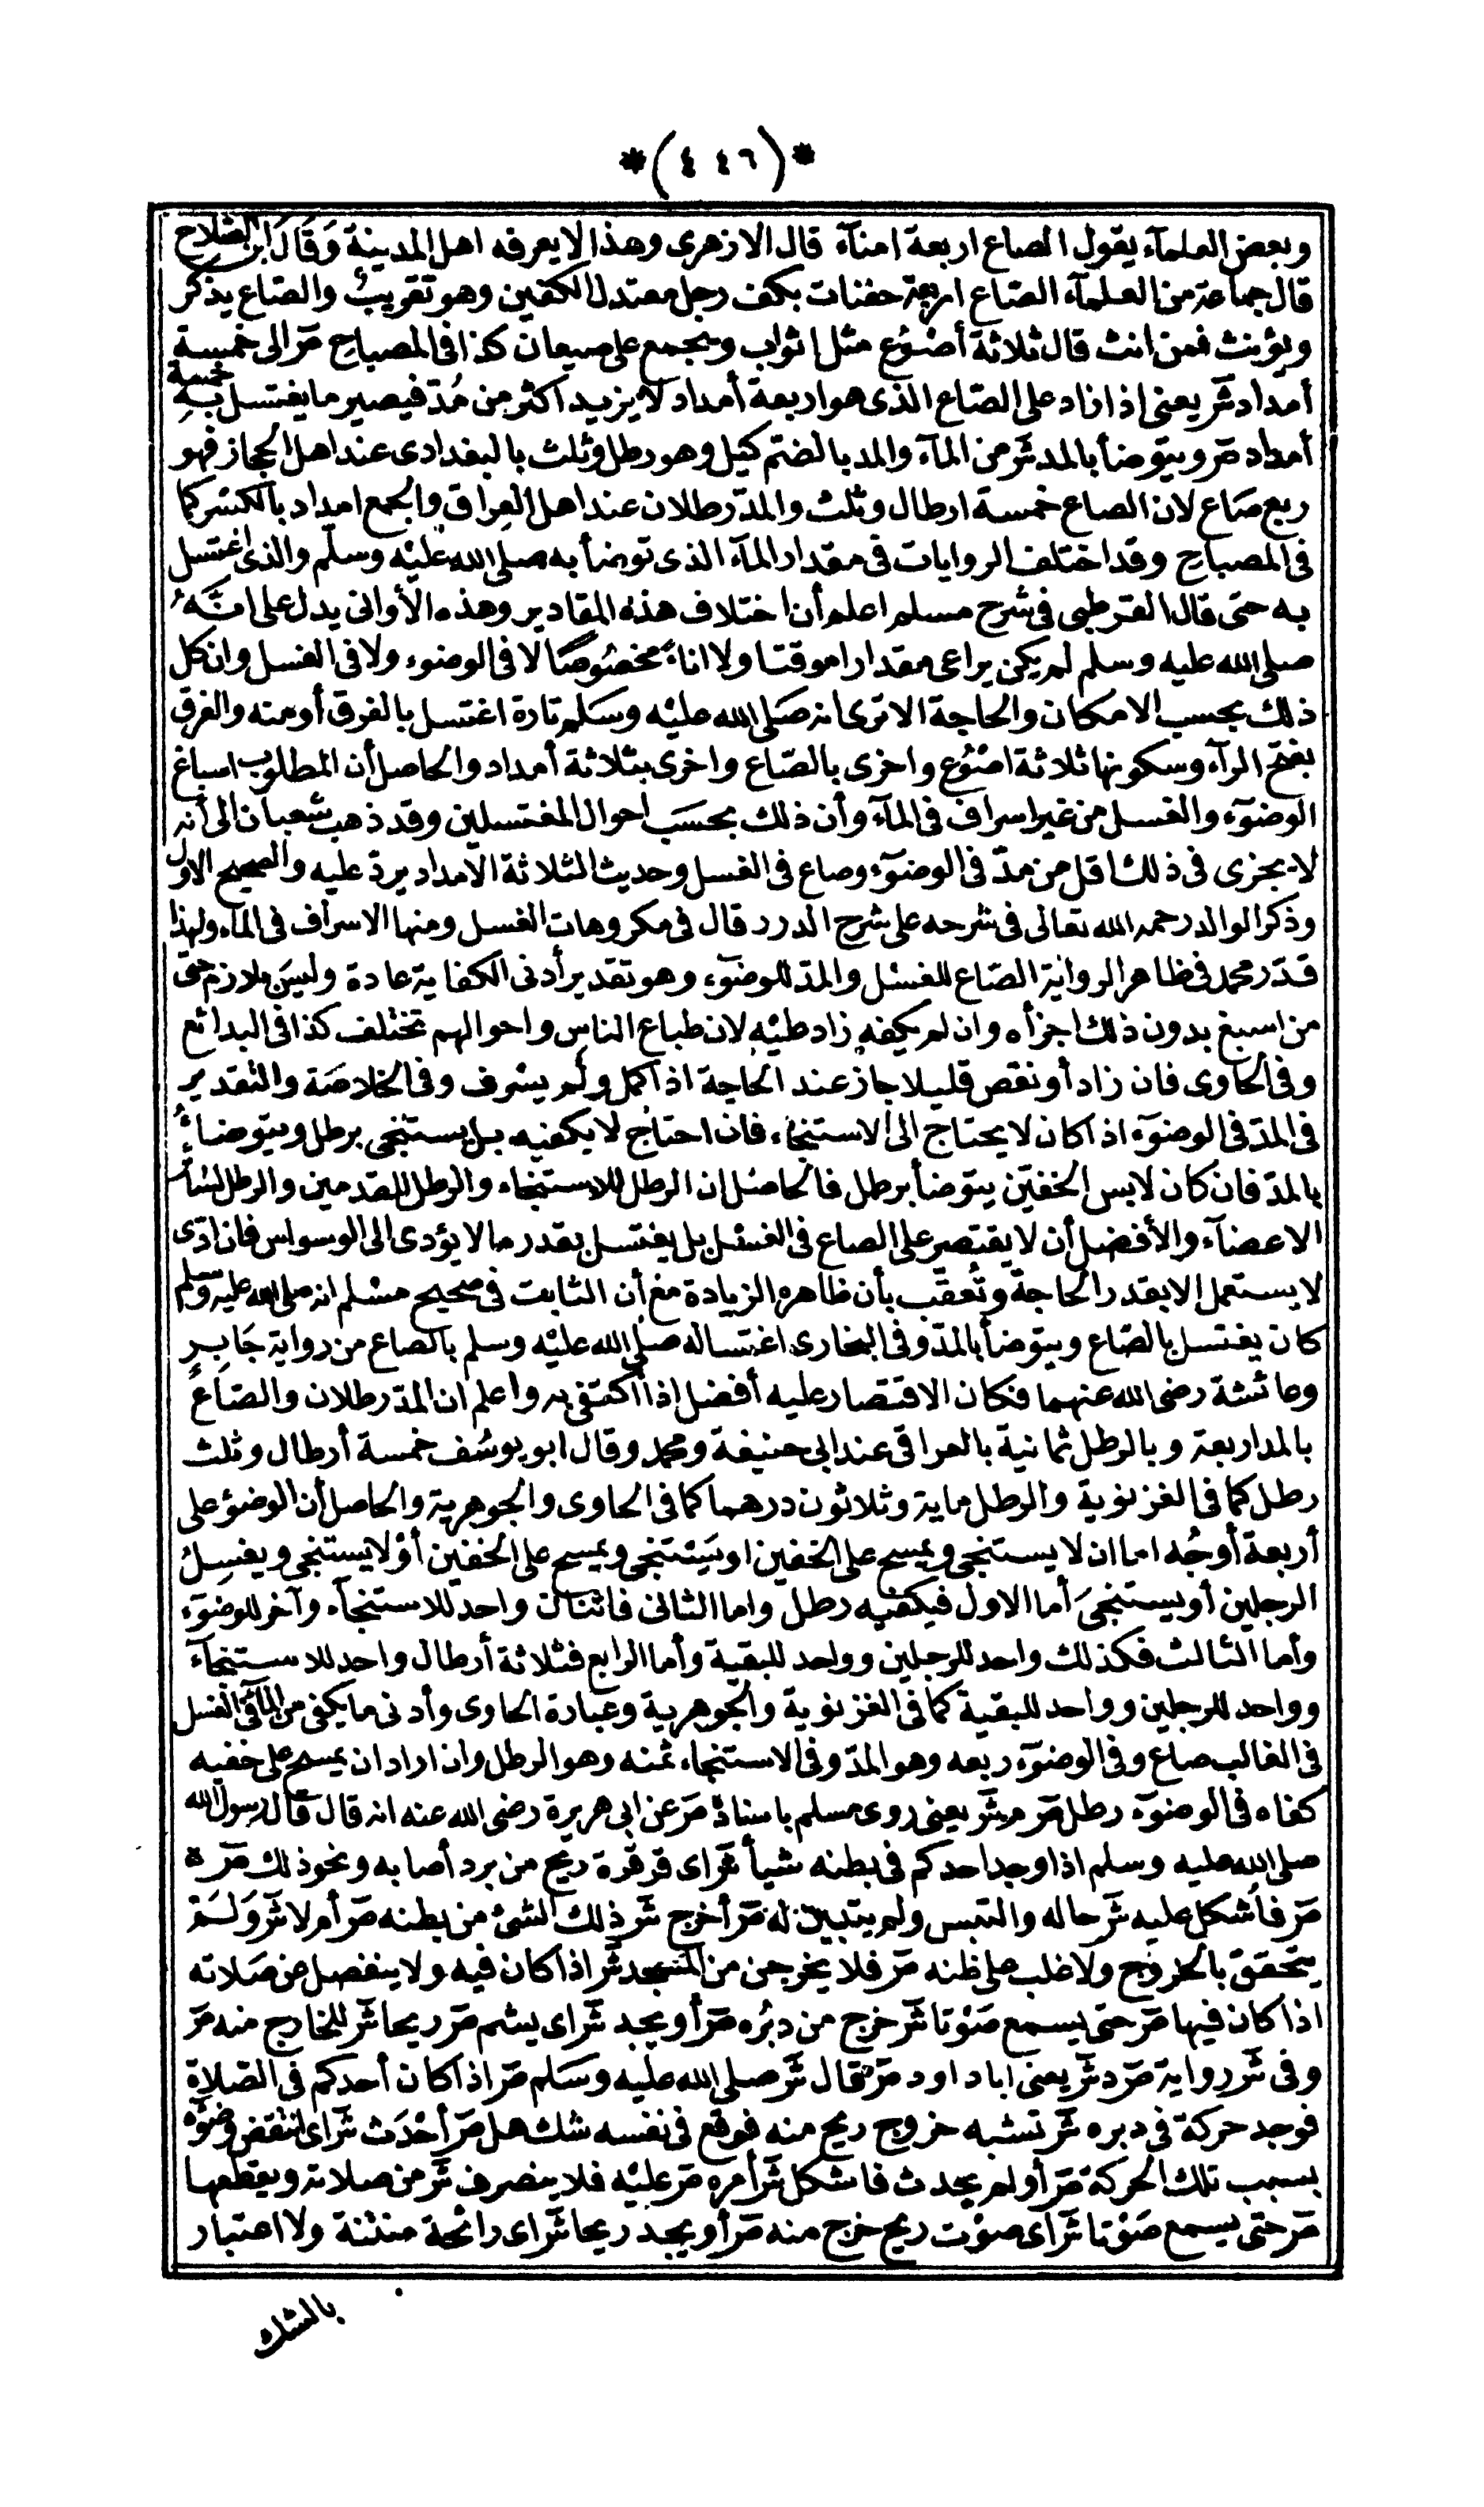 *(٤٤٦)*
وبعض العلماء يقول الصاع اربعة امنآء قال الازهرى وهذا لا يعرفه اهل المدينة وَقَالَ ابن الصّلاح
قال جماعة من العلمآء الصّاع اربعة حفنات بكف رجل معتدل الكفين وهو تقريبُ والصّاع يذكر
ويؤنث فمن انث قال ثلاثة أصْوُع مثل اثواب ويجمع على صيعان كذا فى المصباح مّر الى خمسة
أمداد شّ يعنى اذا زاد على الصّاع الذى هو اربعة أمداد لا يزيد اكثر من مُدّ فيصير ما يغتسل بهِ خمسة
أمداد مّر ويتوّضأ بالمد شّر من المآء والمد بالضم كيل وهو رطل وثلث بالبغدادى عند اهل الحجاز فهو
ربع صَاع لان الصاع خمسة ارطال وثلث والمدّ رطلان عند اهل العِراق والجمع امداد بالكسْر كما
فى المصباح وقد اختلف الروايات فى مقدار المآء الذى توضأ به صلى الله عليْه وسلّم والذى اغتسل
به حتى قال القرطبى فى شرح مسلم اعلم أن اختلاف هذه المقادير وهذه الأوانى يدل على انّهُ
صلى الله عليه وسلم لم يكن يراعى مقدارا موقتا ولا اناء مخصُوصًا لا فى الوضوء ولا فى الغسل وان كل
ذلك بحسب الامكان والحاجة الا ترى انه صَلى الله عليْه وسَلم تارة اغتسل بالفرق أو منه والفرق
بفتح الرآء وسكونها ثلاثة اصْوُع واخرى بالصّاع واخرى بثلاثة أمداد والحاصل أن المطلوب اسباغ
الوضوء والغسل من غير اسراف فى المآء وأن ذلك بحسَب احوال المغتسلين وقد ذهب شعبان الى أنه
لا يجزى فى ذلك اقل من مدّ فى الوضوء وصاع فى الغسل وحديث الثلاثة الامداد يردّ عليه والصحيح الاول
وذكر الوالد رحمه الله تعالى فى شرحه على شرح الدرر قال فى مكروهات الغسل ومنها الاسراف فى المآء ولهذا
قدّر محمد فى ظاهر الرواية الصّاع للغسْل والمدّ للوضوء وهو تقدير أدنى الكفاية عادة وليسَ بلازم حتى
من اسبغ بدون ذلك اجزأه وان لم يكفه زاد عليْه لان طباع الناس واحوالهم تختلف كذا فى البدائع
وفى الحاوى فان زاد أو نقص قليلا جاز عند الحاجة اذا كمل ولم يسْرف وفى الخلاصَة والتقدير
فى المدّ فى الوضوء اذا كان لا يحتاج الى الاستنجاء فان احتاج لا يكفيه بل يستنجى برطل ويتوضاءُ
بالمدّ فان كان لابس الخفّين يتوضأ برطل فالحاصْل ان الرطل للاستنجاء والرطل للقدمين والرطل لسَائر
الاعضآء والأفضل أن لا يقتصر على الصاع فى الغسْل بل يغتسل بقدر ما لا يؤدى الى الوسواس فان ادّى
لا يستعمل الا بقدر الحاجة وتُعقّب بأن ظاهره الزيادة مع أن الثابت فى صحيح مسْلم انه صلى الله عليه وسلم
كان يغتسل بالصّاع ويتوضأ بالمدّ وفى البخارى اغتساله صلى الله عليْه وسلم بالصاع من رواية جَابِرٍ
وعائشة رضى الله عنهما فكان الاقتصار عليه أفضل اذا اكتفى به واعلم ان المدّ رطلان والصّاعُ
بالمد اربعة وبالرطل ثمانية بالعراقى عند ابى حنيفة ومحمد وقال ابو يوسُف خمسة أرطال وثلث
رطل كما فى الغزنوية والرطل ماية وثلاثون درهما كما فى الحاوى والجوهرية والحاصل أن الوضؤ على
أربعة أوجُه اما ان لا يستنجى ويمسح على الخفين او يَسْتنجى ويمسح على الخفين أوْ لا يستنجى ويغسِلُ
الرجلين أو يستنجىَ أما الاول فيكفيه رطل واما الثانى فاثنان واحد للاستنجآء وآخر للوضوء
وأما الثالث فكذلك واحد للرجلين وواحد للبقية وأما الرابع فثلاثة أرطال واحد للاستنجآء
وواحد للرجلين وواحد للبقية كما فى الغزنوية والجوهرية وعبَارة الحاوى وأدنى ما يكفى من المآء فى الغسل
فى الغالب صاع وفى الوضوء ربعه وهو المدّ وفى الاستنجاء ثمنه وهو الرطل وان اراد ان يمسح على خفيه
كفاه فى الوضوء رطل مّر م شّر يعنى روى مسلم باسناده مّر عن ابى هريرة رضى الله عنه انه قال قال رسول الله
صلى الله عليه وسلم اذا وجد احدكم فى بطنه شيأ شّر اى قرقرة ريح من برد أصابه ونحو ذلك مّرة
مّر فأشكل عليه شّر حاله والتبس ولم يتبين له مّر أخرج شّر ذلك الشئ من بطنه مّر أم لا شّر وَلَمْ
يتحقق بالخروج ولا غلب على ظنه مّر فلا يخرجن من المسجد شّر اذا كان فيه ولا ينفصل عن صَلاته
اذا كان فيها مّر حتى يسمع صَوْتا شّر خرج من دبُره مّر أو يجد شّر اى يشم مّر ريحا شّر للخارج منه مّر
وفى شّر رواية مّر د شّر يعنى ابا داود مّر قال شّر صلى الله عليه وسَلم مّر اذا كان أحدكم فى الصّلاة
فوجد حركة فى دبره شّر تشبه خروج ريح منه فوقع فى نفسه شك هل مّر أحْدَث شّر اى انتقض وضوّه
بسبب تلك الحركة مّر أو لم يحدث فاشكل شّر أمره مّر عليْه فلا ينصرف شّر من صلاته ويقطعها
مّر حتى يسمع صَوْتا شّر اى صوْت ريح خرج منه مّر أو يجد ريحا شّر اى رائحة منتنة ولا اعتبار
بالشك